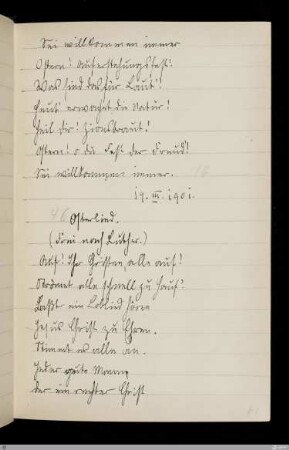 Sei willkommen immer
Ostern! Auferstehungsfest!
Was sind das für Laut'!
Heut' erwachet die Natur!
Heil dir! Zionsbraut!
Ostern! o du Fest der Freud!
Sei willkommen immer.
19. III. 1901.
46 Osterlied.
(Frei nach Luther.)
Auf! Ihr Christen, alle auf!
Strömet alle schnell zu Hauf!
Laßt ein Loblied hören
Jesus Christ zu Ehren.
Stimmt es alle an.
Jeder gute Mann,
der ein rechter Christ